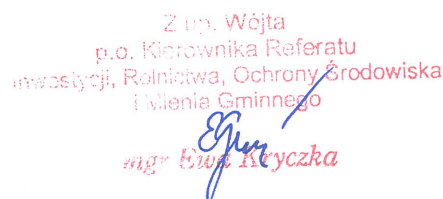 Z up. Wójta
p.o. Kierownika Referatu
Inwestycji, Rolnictwa, Ochrony Środowiska
i Mienia Gminnego
mgr Ewa Kryczka